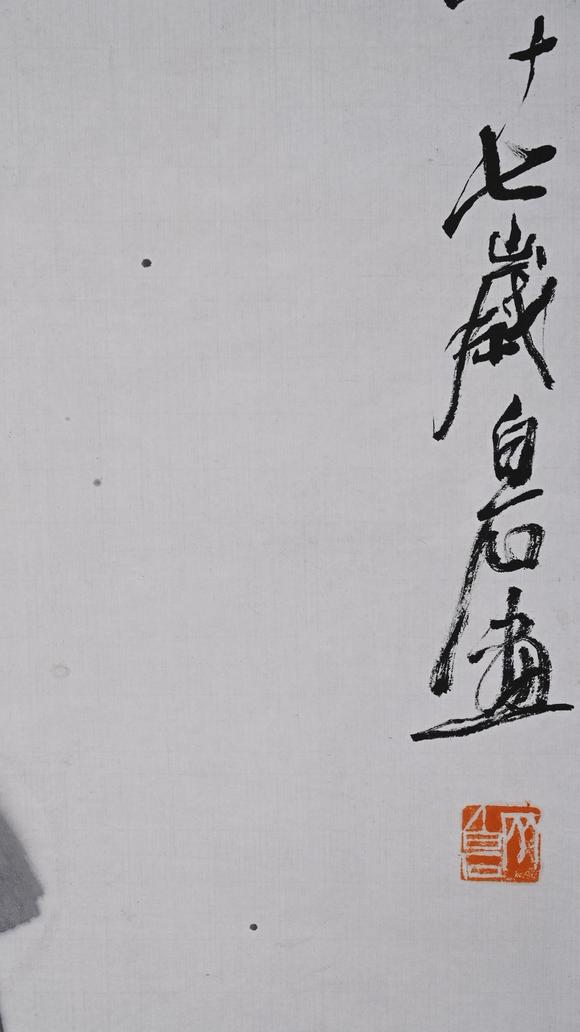 十七歲白石畫